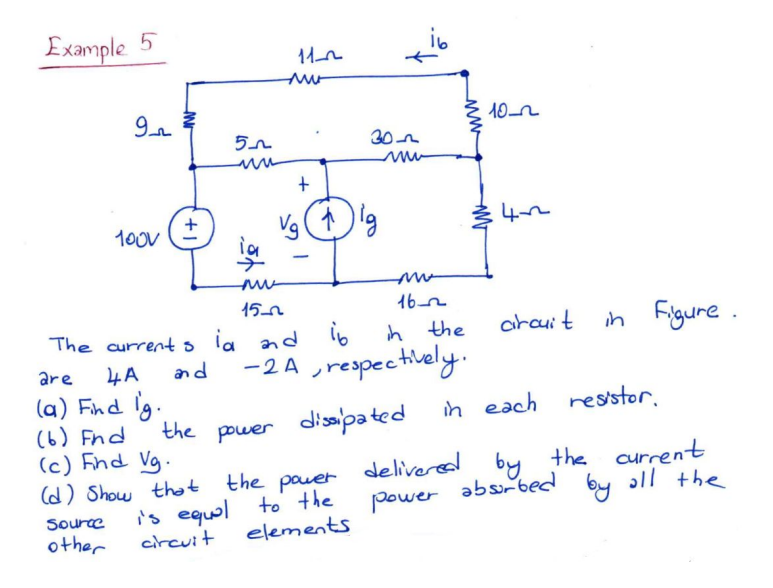 Example 5
11Ω
ib
9Ω
10Ω
5Ω
30Ω
+
100V
+
-
Vg
ig
4Ω
ia
-
15Ω
16Ω
The currents ia and ib in the circuit in Figure.
are 4A and -2A, respectively.
(a) Find ig.
(b) Fnd the power dissipated in each resistor.
(c) Find Vg.
(d) Show that the power delivered by the current
source is equal to the power absorbed by all the
other circuit elements